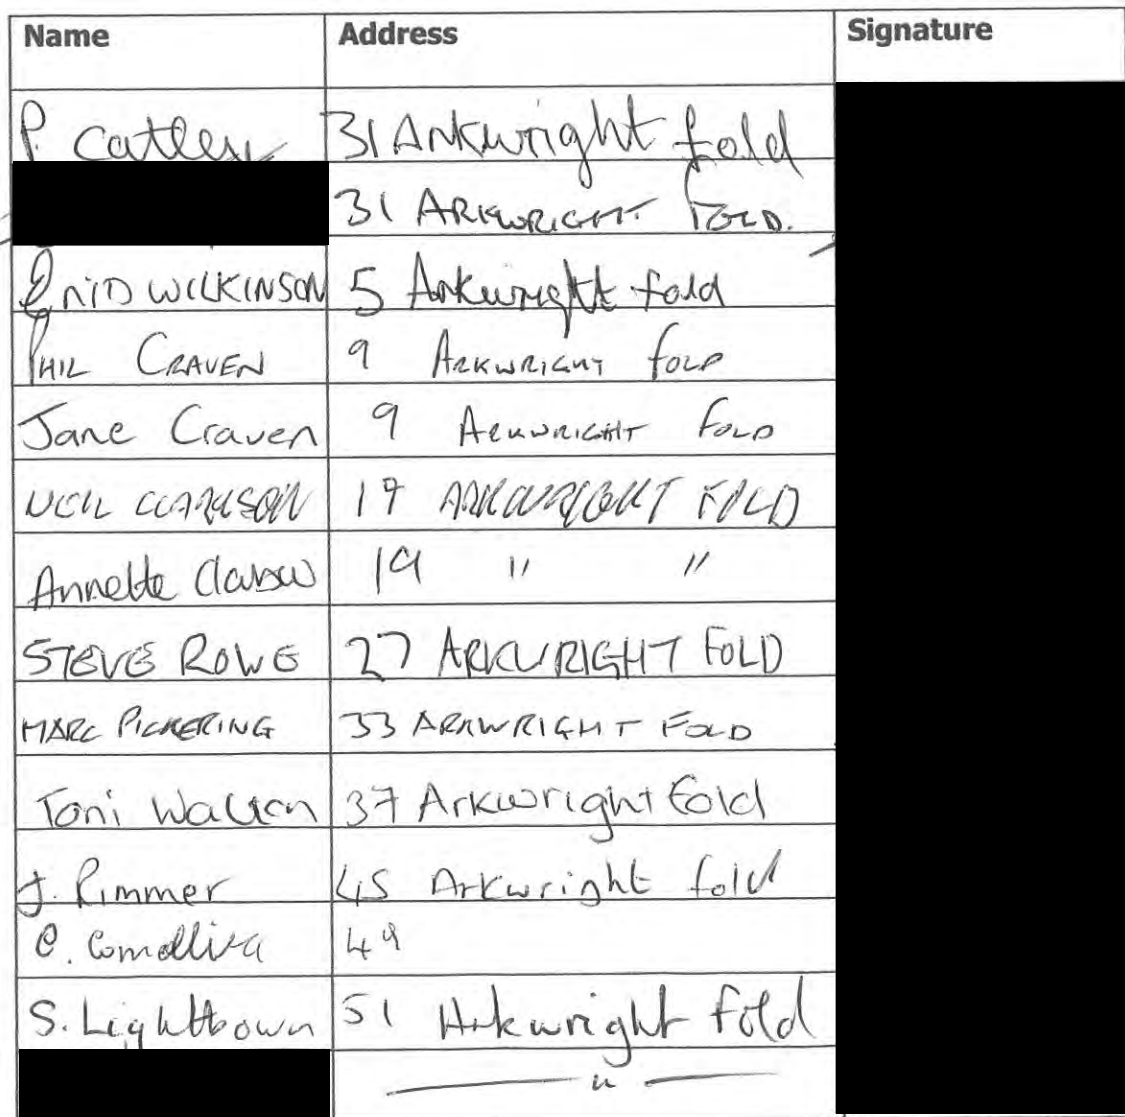 Name Address Signature
P. Catley 31 Arkwright fold
31 ARKWRIGHT FOLD.
ENID WILKINSON 5 Arkwright fold
PHIL CRAVEN 9 ARKWRIGHT FOLD
Jane Craven 9 ARKWRIGHT FOLD
NEIL CLARKSON 19 ARKWRIGHT FOLD
Annette 19 " "
STEVE ROWE 27 ARKWRIGHT FOLD
MARC PICKERING 33 ARKWRIGHT FOLD
Toni 37 Arkwright Fold
J. Rimmer 45 Arkwright fold
C. 49
S. Lightbown 51 Arkwright Fold
— " —